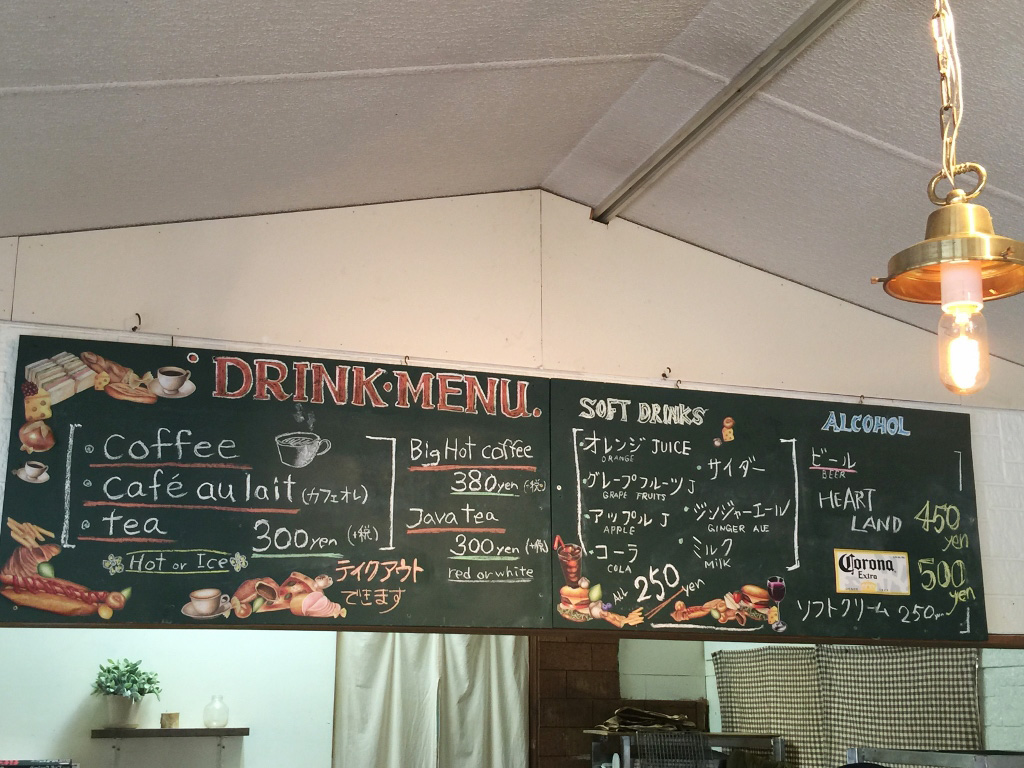 DRINK・MENU.
・coffee
・café au lait (カフェオレ)
・tea
300yen (+税)
Hot or Ice
Big Hot coffee
380yen (+税)
Java tea
300yen (+税)
red or white
テイクアウト
できます
SOFT DRINKS
・オレンジ JUICE
ORANGE
・グレープフルーツ J
GRAPE FRUITS
・アップル J
APPLE
・コーラ
COLA
・サイダー
・ジンジャーエール
GINGER ALE
・ミルク
MILK
ALL 250yen
ALCOHOL
ビール
BEER
HEART
LAND
450
yen
Corona
Extra
500
yen
ソフトクリーム 250yen